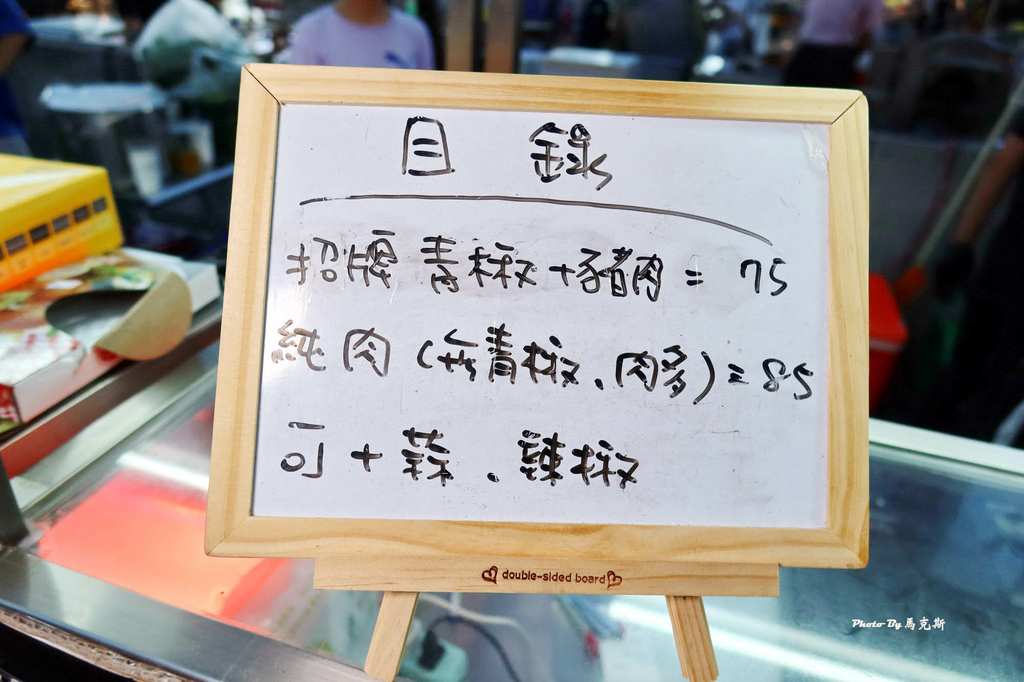 目 錄
招牌 青椒+豬肉 = 75
純肉 (無青椒、肉多) = 85
可 + 蒜、辣椒
double-sided board
Photo By 馬克斯